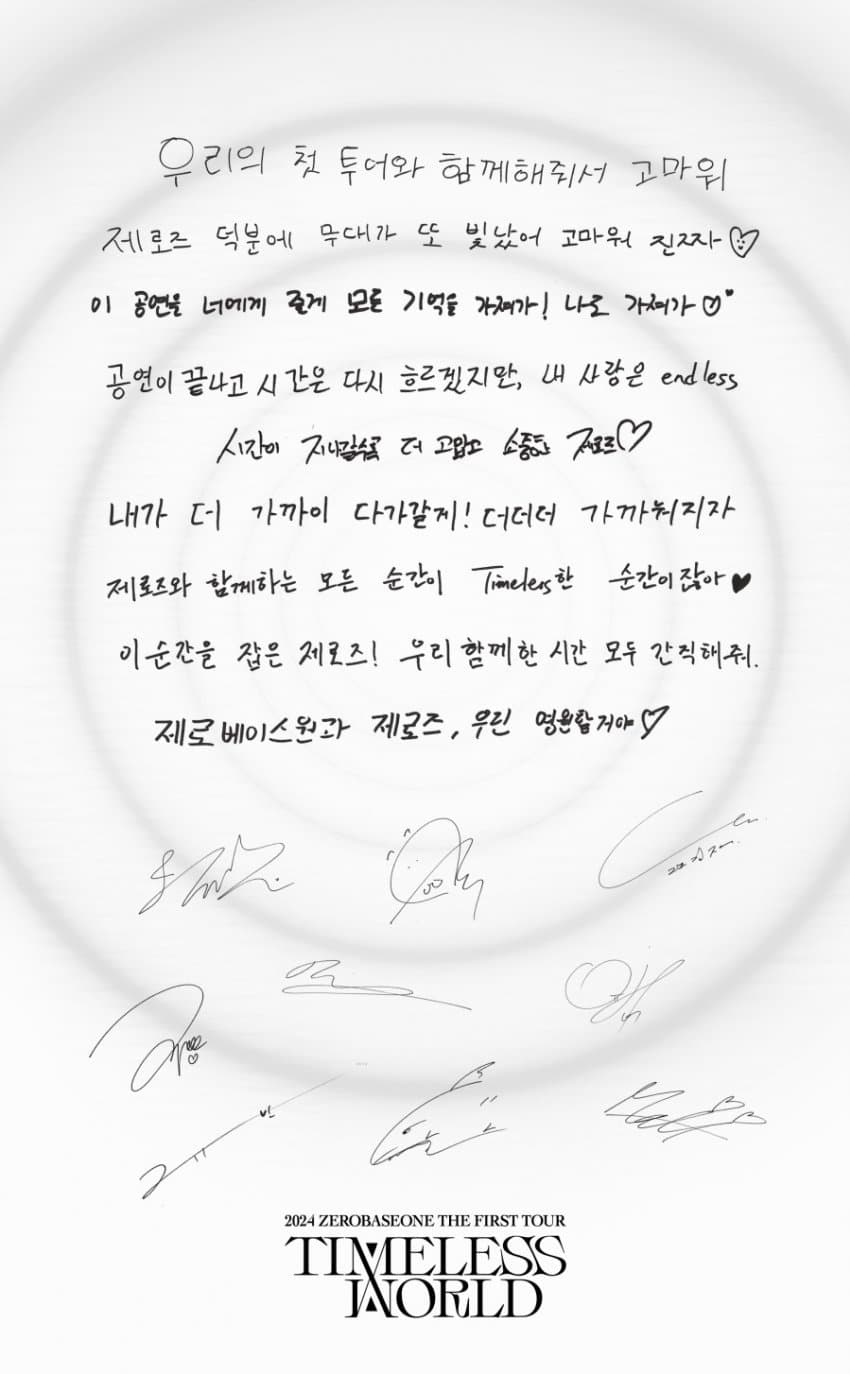 우리의 첫 투어와 함께해줘서 고마워
제로즈 덕분에 무대가 또 빛났어 고마워 진짜
이 공연을 너에게 줄게 모든 기억을 가져가! 나로 가져가
공연이 끝나고 시간은 다시 흐르겠지만, 내 사랑은 endless
시간이 지나갈수록 더 고맙고 소중한 제로즈♡
내가 더 가까이 다가갈게! 더더더 가까워지자
제로즈와 함께하는 모든 순간이 Timeless한 순간이잖아♥
이 순간을 잡은 제로즈! 우리 함께한 시간 모두 간직해줘.
제로베이스원과 제로즈, 우린 영원할거야♡
2024 ZEROBASEONE THE FIRST TOUR
TIMELESS
WORLD